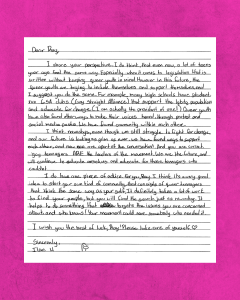 Dear Ray,
I share your perspective. I do think that even now, a lot of teens
your age feel the same way. Especially when it comes to legislation that is
written without keeping queer youth in mind. However in this future, the
queer youth are trying to include themselves and support themselves, and
I suggest you do the same. For example, many high schools have student
run GSA clubs (Gay Straight Alliance) that support the lgbtq population
and advocate for change. (I am actually the president of one!) Queer youth
have also found other ways to make their voices heard through protest and
social media posts. We have found community within each other.
I think, nowadays, even though we still struggle to fight for change,
and our future is looking to give up, we have found ways to support
each other, and now are apart of the conversation. And you are right,
gay teenagers ARE the leaders of the movement. We are the future, and
will continue to educate ourselves and advocate for those teenagers who
couldn't.
I do have one piece of advice for you, Ray. I think it's a very great
idea to start your own kind of community that consists of queer teenagers
that think the same way as yourself. It definitely takes a lot of work
to find your people, but you will find the search just as rewarding. It
helps to do something that targets the issues you are concerned
about, and who knows! Your movement could save somebody who needed it.
I wish you the best of luck, Ray! Please take care of yourself ♡
Sincerely,